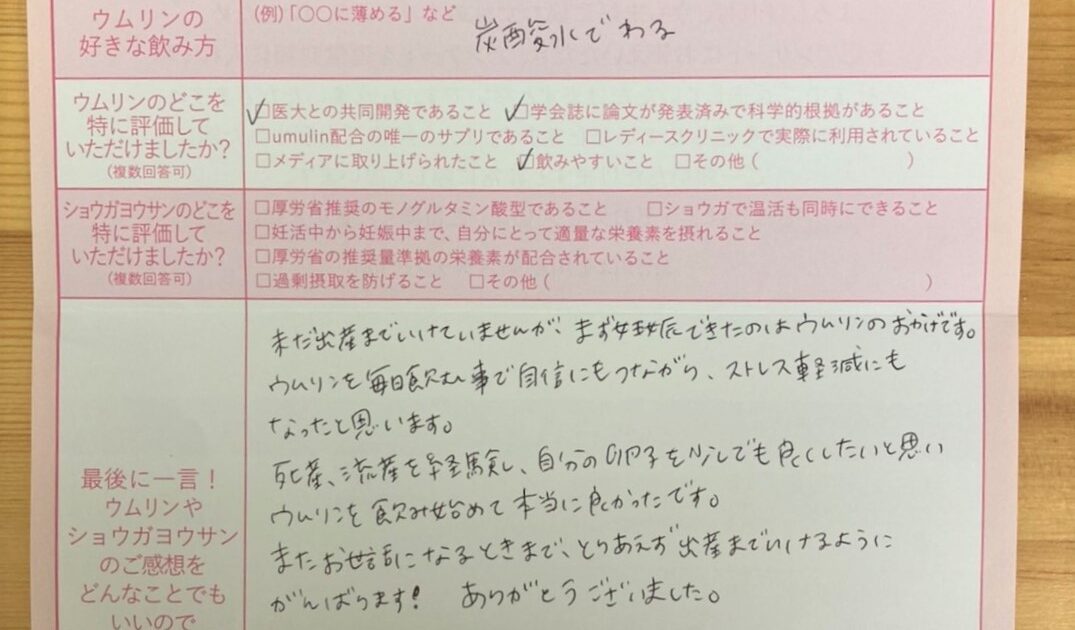 ウムリンの
好きな飲み方
(例)「○○に薄める」など
炭酸水でわる
ウムリンのどこを
特に評価して
いただけましたか?
(複数回答可)
☑医大との共同開発であること ☑学会誌に論文が発表済みで科学的根拠があること
□umulin配合の唯一のサプリであること □レディースクリニックで実際に利用されていること
□メディアに取り上げられたこと ☑飲みやすいこと □その他( )
ショウガヨウサンのどこを
特に評価して
いただけましたか?
(複数回答可)
□厚労省推奨のモノグルタミン酸型であること □ショウガで温活も同時にできること
□妊活中から妊娠中まで、自分にとって適量な栄養素を摂れること
□厚労省の推奨量準拠の栄養素が配合されていること
□過剰摂取を防げること □その他( )
最後に一言!
ウムリンや
ショウガヨウサン
のご感想を
どんなことでも
いいので
未だ出産までいけていませんが、まず妊娠できたのはウムリンのおかげです。
ウムリンを毎日飲む事で自信にもつながら、ストレス軽減にも
なったと思います。
死産、流産を経験し、自分の卵子を少しでも良くしたいと思い
ウムリンを飲み始めて本当に良かったです。
またお世話になるときまで、とりあえず出産までいけるように
がんばります! ありがとうございました。